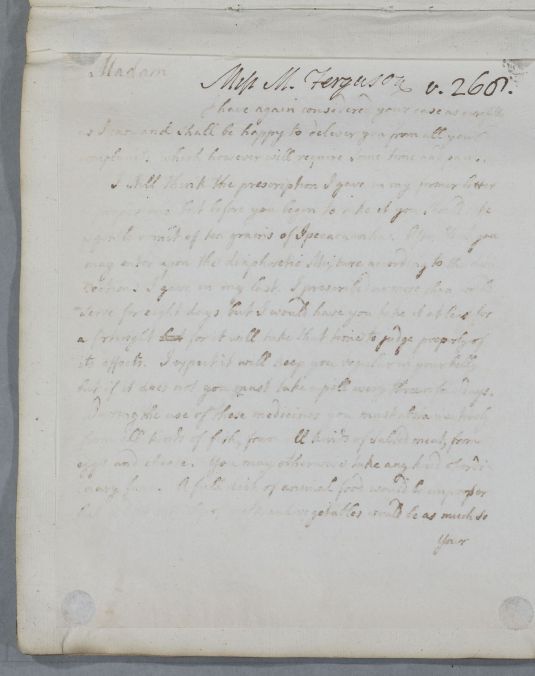 Madam
Miss M. Ferguson v. 266.
I have again considered your case as well
as I can and shall be happy to deliver you from all your
complaints which however will require some time and pains.
I still think the prescription I gave in my former letter
but before you begin to take it you should take
a gentle vomit of ten grains of Ipecacuanha. After that you
may enter upon the diaphoretic Mixture according to the dire
ctions I gave in my last. I prescribed no more than would
serve for eight days but I would have you take it at least for
a fortnight for it will take that time to judge properly of
its effects. I expect it will keep you regular in your belly
but if it does not you must take a pill every three days.
During the use of these medicines you must abstain
from all kinds of fish, from all kinds of salted meat, from
eggs and cheese. You may otherwise take any kind of ordi
nary fare. A full diet of animal food would be improper
but and vegetables would be as much so
Your